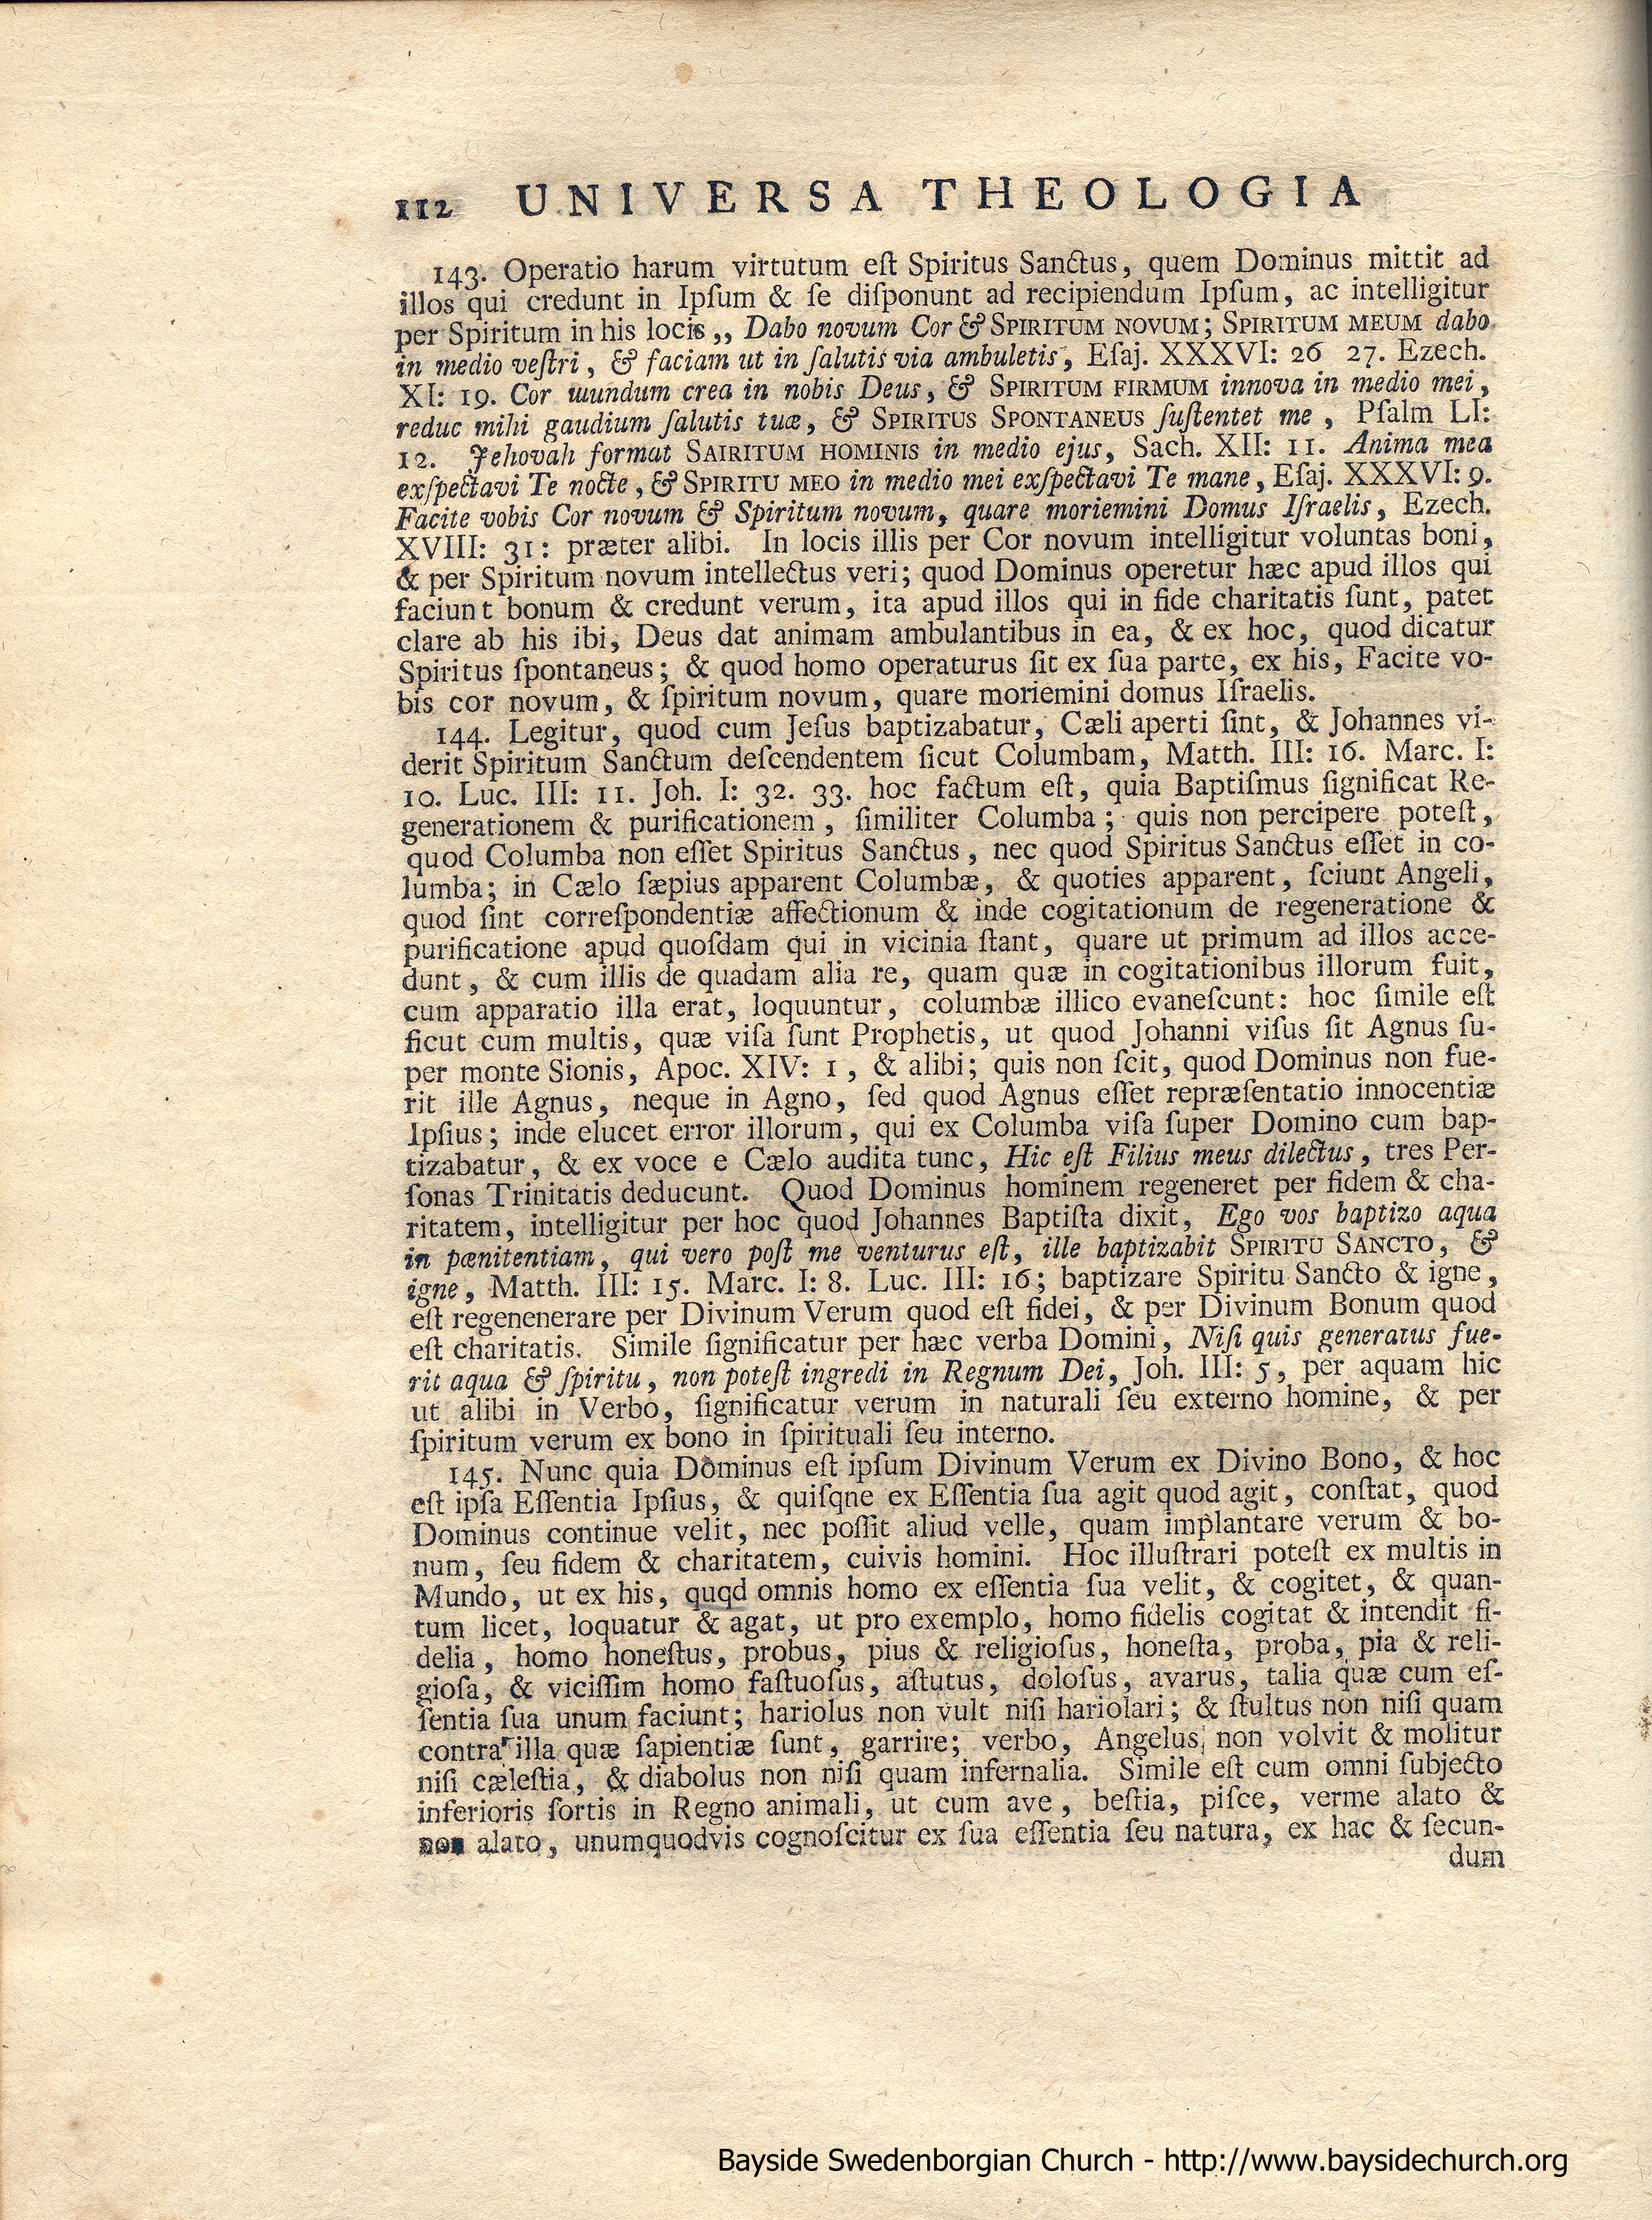 112 UNIVERSA THEOLOGIA
143. Operatio harum virtutum eſt Spiritus Sanctus, quem Dominus mittit ad
illos qui credunt in Ipſum & ſe diſponunt ad recipiendum Ipſum, ac intelligitur
per Spiritum in his locis,, Dabo novum Cor & SPIRITUM NOVUM; SPIRITUM MEUM dabo
in medio veſtri, & faciam ut in ſalutis via ambuletis, Eſaj. XXXVI: 26 27. Ezech.
XI: 19. Cor wundum crea in nobis Deus, & SPIRITUM FIRMUM innova in medio mei,
reduc mihi gaudium ſalutis tuæ, & SPIRITUS SPONTANEUS ſuſtentet me, Pſalm LI:
12. Jehovah format SAIRITUM HOMINIS in medio ejus, Sach. XII: 11. Anima mea
exſpectavi Te nocte, & SPIRITU MEO in medio mei exſpectavi Te mane, Eſaj. XXXVI: 9.
Facite vobis Cor novum & Spiritum novum, quare moriemini Domus Iſraelis, Ezech.
XVIII: 31: præter alibi. In locis illis per Cor novum intelligitur voluntas boni,
& per Spiritum novum intellectus veri; quod Dominus operetur hæc apud illos qui
faciunt bonum & credunt verum, ita apud illos qui in fide charitatis ſunt, patet
clare ab his ibi, Deus dat animam ambulantibus in ea, & ex hoc, quod dicatur
Spiritus ſpontaneus; & quod homo operaturus ſit ex ſua parte, ex his, Facite vo-
bis cor novum, & ſpiritum novum, quare moriemini domus Iſraelis.
144. Legitur, quod cum Jeſus baptizabatur, Cæli aperti ſint, & Johannes vi-
derit Spiritum Sanctum deſcendentem ſicut Columbam, Matth. III: 16. Marc. I:
10. Luc. III: 11. Joh. I: 32. 33. hoc factum eſt, quia Baptiſmus ſignificat Re-
generationem & purificationem, ſimiliter Columba; quis non percipere poteſt,
quod Columba non eſſet Spiritus Sanctus, nec quod Spiritus Sanctus eſſet in co-
lumba; in Cælo ſæpius apparent Columbæ, & quoties apparent, ſciunt Angeli,
quod ſint correſpondentiæ affectionum & inde cogitationum de regeneratione &
purificatione apud quoſdam qui in vicinia ſtant, quare ut primum ad illos acce-
dunt, & cum illis de quadam alia re, quam quæ in cogitationibus illorum fuit,
cum apparatio illa erat, loquuntur, columbæ illico evaneſcunt: hoc ſimile eſt
ficut cum multis, quæ viſa ſunt Prophetis, ut quod Johanni viſus ſit Agnus ſu-
per monte Sionis, Apoc. XIV: 1, & alibi; quis non ſcit, quod Dominus non fue-
rit ille Agnus, neque in Agno, ſed quod Agnus eſſet repræſentatio innocentiæ
Ipſius; inde elucet error illorum, qui ex Columba viſa ſuper Domino cum bap-
tizabatur, & ex voce e Cælo audita tunc, Hic eſt Filius meus dilectus, tres Per-
ſonas Trinitatis deducunt. Quod Dominus hominem regeneret per fidem & cha-
ritatem, intelligitur per hoc quod Johannes Baptiſta dixit, Ego vos baptizo aqua
in pænitentiam, qui vero poſt me venturus eſt, ille baptizabit SPIRITU SANCTO, &
igne, Matth. III: 15. Marc. I: 8. Luc. III: 16; baptizare Spiritu Sancto & igne,
eſt regenenerare per Divinum Verum quod eſt fidei, & per Divinum Bonum quod
eſt charitatis. Simile ſignificatur per hæc verba Domini, Niſi quis generatus fue-
rit aqua & ſpiritu, non poteſt ingredi in Regnum Dei, Joh. III: 5, per aquam hic
ut alibi in Verbo, ſignificatur verum in naturali ſeu externo homine, & per
ſpiritum verum ex bono in ſpirituali ſeu interno.
145. Nunc quia Dominus eſt ipſum Divinum Verum ex Divino Bono, & hoc
eſt ipſa Eſſentia Ipſius, & quiſqne ex Eſſentia ſua agit quod agit, conſtat, quod
Dominus continue velit, nec poſſit aliud velle, quam implantare verum & bo-
num, ſeu fidem & charitatem, cuivis homini. Hoc illuſtrari poteſt ex multis in
Mundo, ut ex his, quqd omnis homo ex eſſentia ſua velit, & cogitet, & quan-
tum licet, loquatur & agat, ut pro exemplo, homo fidelis cogitat & intendit fi-
delia, homo honeſtus, probus, pius & religioſus, honeſta, proba, pia & reli-
gioſa, & viciſſim homo faſtuoſus, aſtutus, doloſus, avarus, talia quæ cum eſ-
ſentia ſua unum faciunt; hariolus non vult niſi hariolari; & ſtultus non niſi quam
contra illa quæ ſapientiæ ſunt, garrire; verbo, Angelus non volvit & molitur
niſi cæleſtia, & diabolus non niſi quam infernalia. Simile eſt cum omni ſubjecto
inferioris ſortis in Regno animali, ut cum ave, beſtia, piſce, verme alato &
non alato, unumquodvis cognoſcitur ex ſua eſſentia ſeu natura, ex hac & ſecun-
dum
Bayside Swedenborgian Church - http://www.baysidechurch.org